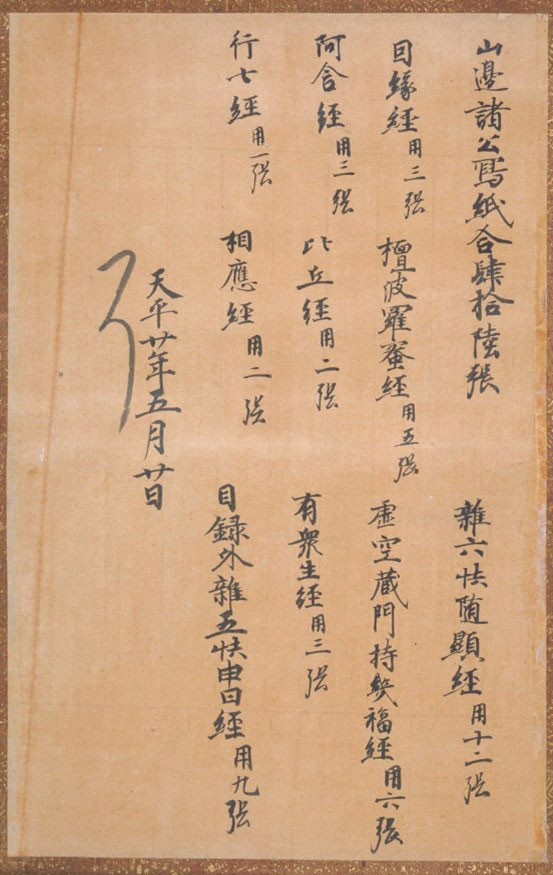 山邊諸公寫紙合肆拾陸張 雜六帙随願經用十二張
因縁經用三張 檀波羅蜜經用五張 虚空蔵門持幾福經用六張
阿含經用三張 比丘經用二張 有衆生經用三張
行七經用一張 相應經用二張 目録外雜五帙申日經用九張
天平廿年五月廿日